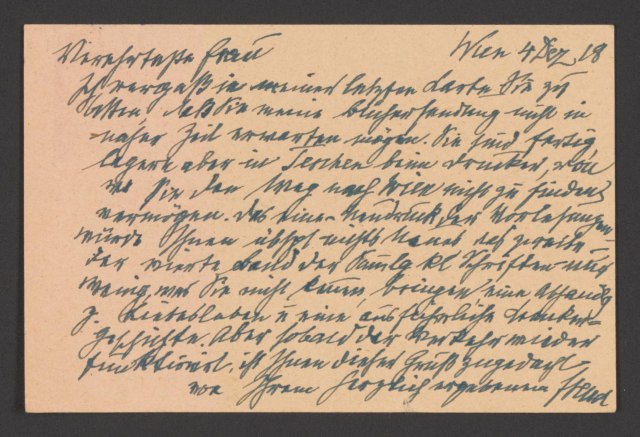 Verehrteste Frau Wien 4 Dez 18
Ich vergaß in meiner letzten Karte Sie zu
bitten, daß Sie meine Büchersendung nicht in
naher Zeit erwarten mögen. Sie sind fertig
lagern aber in Teschen beim Drucker, von
wo sie den Weg nach Wien nicht zu finden
vermögen. Das eine Neudruck der Vorlesungen
würde Ihnen nichts Neues das zweite
der vierte Band der Smlg kl Schriften nur
wenig, was Sie nicht kennen, bringen, eine Abhandlg
z. Liebesleben u eine ausführliche Kranken-
geschichte. Aber sobald der Verkehr wieder
funktionirt, ist Ihnen dieser Gruß zugedacht
von Ihrem herzlich ergebenen Freud